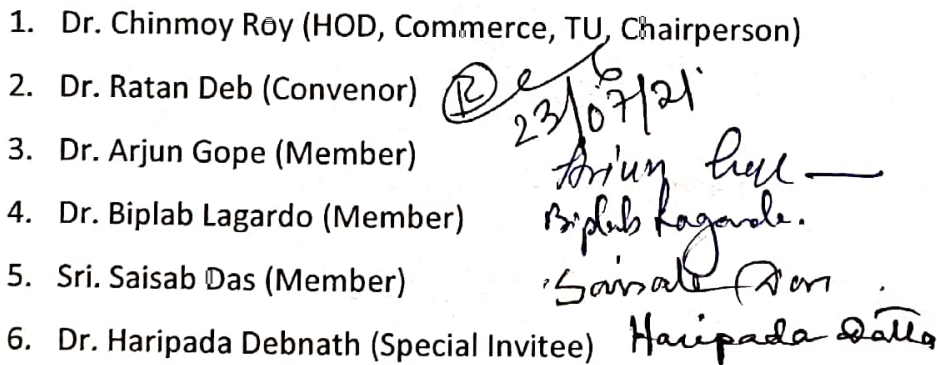 1. Dr. Chinmoy Roy (HOD, Commerce, TU, Chairperson)
2. Dr. Ratan Deb (Convenor)
23/07/21
3. Dr. Arjun Gope (Member) Arjun
4. Dr. Biplab Lagardo (Member) Biplab Lagardo.
5. Sri. Saisab Das (Member) Saisab Das
6. Dr. Haripada Debnath (Special Invitee) Haripada Datta